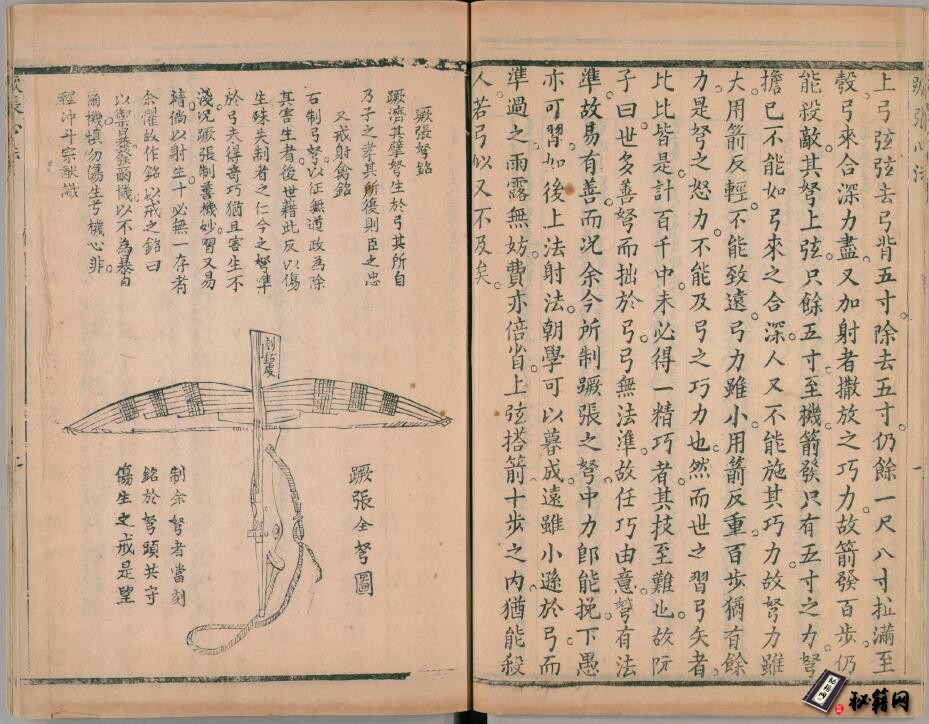 上弓弦弦去弓背五寸除去五寸仍餘一尺八寸拉滿至
彀弓來合深力盡又加射者撒放之巧力故箭發百步仍
能殺敵其弩上弦只餘五寸至機箭發只有五寸之力弩
擔已不能如弓來之合深人又不能施其巧力故弩力雖
大用箭反輕不能致遠弓力雖小用箭反重百步猶有餘
力是弩之怒力不能及弓之巧力也然而世之習弓矢者
比比皆是計百千中未必得一精巧者其技至難也故阮
子曰世多善弩而拙於弓弓無法準故任巧由意弩有法
準故易有善而况余今所制蹶張之弩中力郎能挽下愚
亦可習如後上法射法朝學可以暮成遠雖小遜於弓而
準過之雨露無妨費亦倍省上弦搭箭十步之内猶能殺
人若弓似又不及矣
蹶張弩銘
蹶濟其臂弩生於弓其所自
乃子之孝其所復則臣之忠
又戒射禽銘
石制弓弩以征無道政為除
其害生者後世藉此反以傷
生殊失制者之仁今之弩準
於弓夫得奇巧猶且害生不
淺况蹶張制善機妙習又易
精倘以射生十必無一存者
余懼故作銘以戒之銘曰
以禦暴發爾機以不為暴自
爾機慎勿傷生兮機心非
程沖斗宗猷識
蹶張全弩圖
制余弩者當刻
銘於弩頭共守
傷生之戒是望
秘籍网